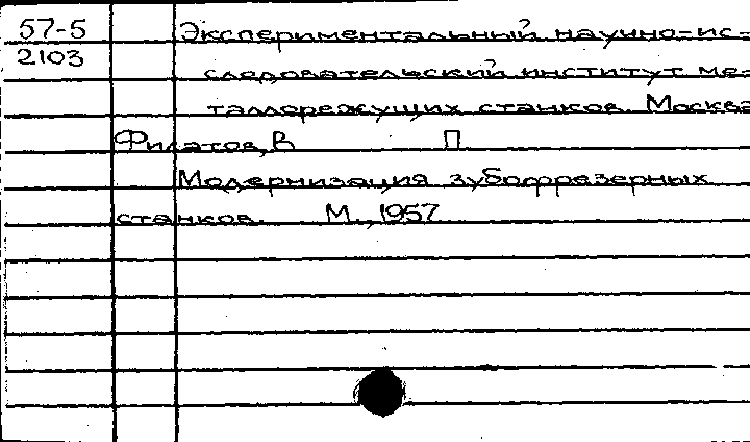 57-5 Экспериментальный научно-ис-
2103 следовательский институт ме-
таллорежущих станков. Москва
Филатов, В П
Модернизация зубофрезерных
станков. М., 1957